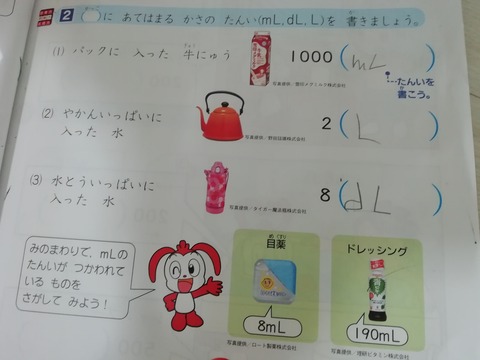 2 ( )に あてはまる かさの たんい(mL、dL、L)を 書きましょう。
(1) パックに 入った 牛にゅう 1000 ( mL )
ぎゅう
写真提供/雪印メグミルク株式会社
たんいを
書こう。
(2) やかんいっぱいに
入った 水
2 ( L )
写真提供/野田琺瑯株式会社
(3) 水とういっぱいに
入った 水
8 ( dL )
写真提供/タイガー魔法瓶株式会社
みのまわりで、mLの
たんいが つかわれて
いる ものを
さがして みよう!
めぐすり
目薬
8mL
写真提供/ロート製薬株式会社
ドレッシング
190mL
写真提供/理研ビタミン株式会社